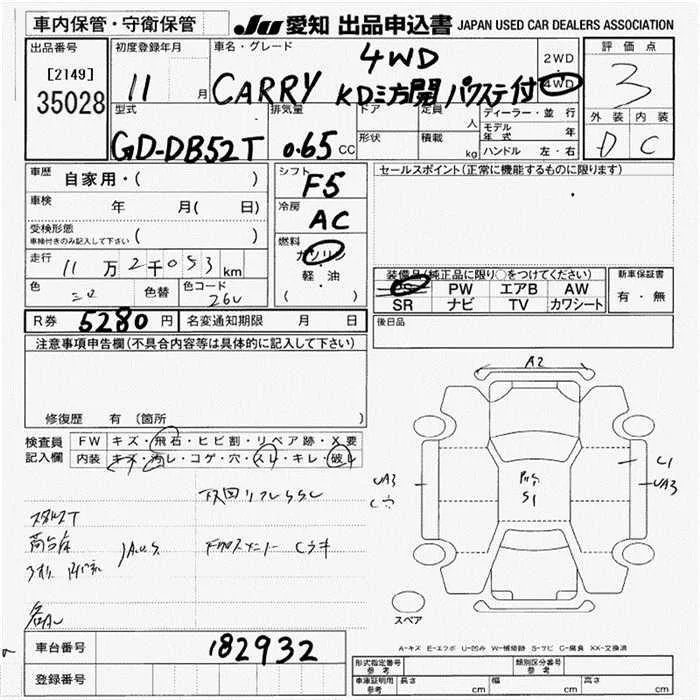 車内保管・守衛保管
JU 愛知 出品申込書 JAPAN USED CAR DEALERS ASSOCIATION
出品番号
[2149]
35028
初度登録年月
11 月
車名・グレード
4WD
CARRY KD三方開 パワステ付
2WD
4WD
評価点
3
外装 内装
D C
型式
GD-DB52T
排気量
0.65 CC
ドア
形状
定員 人
積載 kg
ディーラー・並行
モデル年式 年
ハンドル 左・右
車歴 自家用・( )
車検 年 月( 日)
受検形態
車検付きのみ記入して下さい ( )
走行 11万2千053 km
色 色替 色コード 26U
シフト
F5
冷房
AC
燃料
ガソリン
軽・油
( )
セールスポイント(正常に機能するものに限ります)
装備品(純正品に限り○をつけてください)
PS PW エアB AW
SR ナビ TV カワシート
新車保証書
有・無
後日品
R券 5280円 名変通知期限 月 日
注意事項申告欄(不具合内容等は具体的に記入して下さい)
修復歴 有 (箇所 )
検査員記入欄
FW キズ・飛石・ヒビ割・リペア跡・X要
内装 キズ・汚レ・コゲ・穴・スレ・キレ・破レ
A2
UA3
C
S1
L1
UA3
スペア
A-キズ E-エクボ U-凹み W-補修跡 S-サビ C-腐食 XX-交換済
車台番号 182932
登録番号
形式指定番号 参考
類別区分番号 参考
車庫証明用 参考
長さ cm
幅 cm
高さ cm